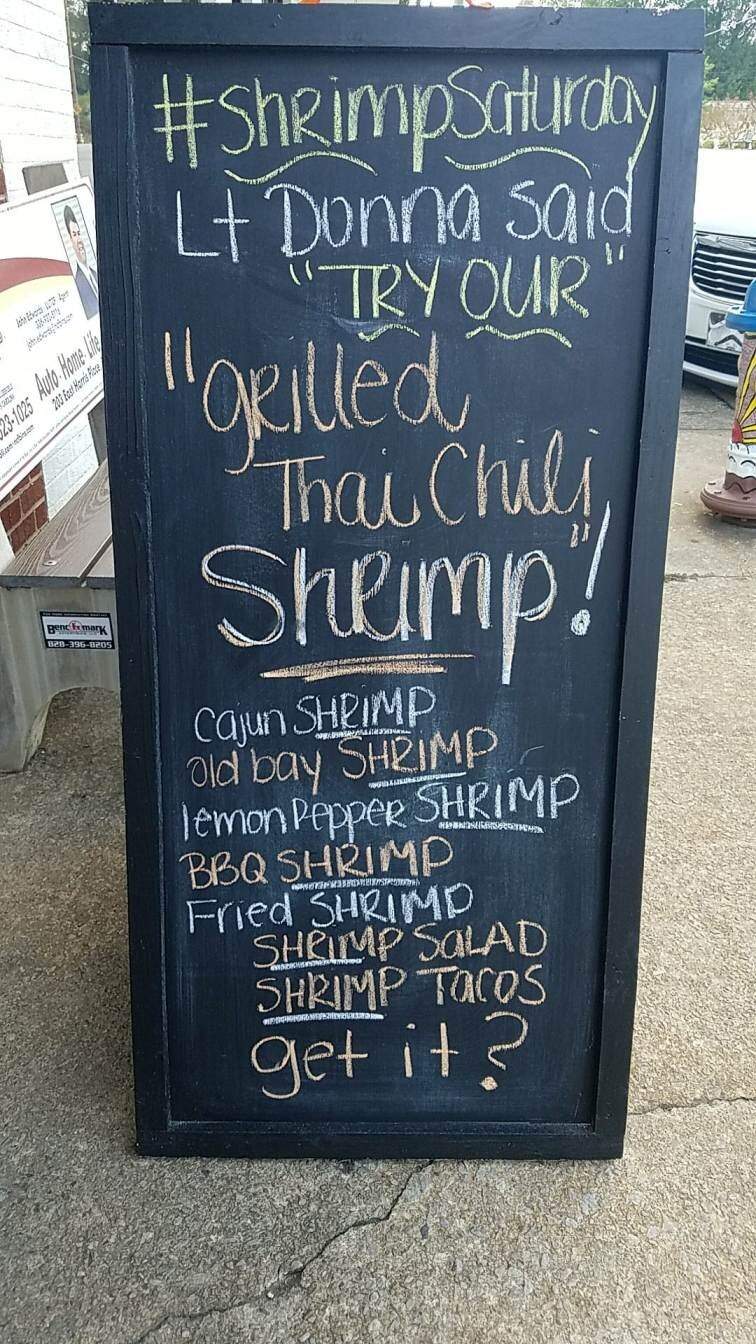 #ShrimpSaturday
Lt Donna said
"TRY OUR"
"grilled
Thai Chili
Shrimp"!
Cajun SHRIMP
Old bay SHRIMP
lemon Pepper SHRIMP
BBQ SHRIMP
Fried SHRIMP
SHRIMP SALAD
SHRIMP TACOS
get it?
Auto. Home. Life
203 East Harris Place
23-1025
Benchmark
828-396-8205